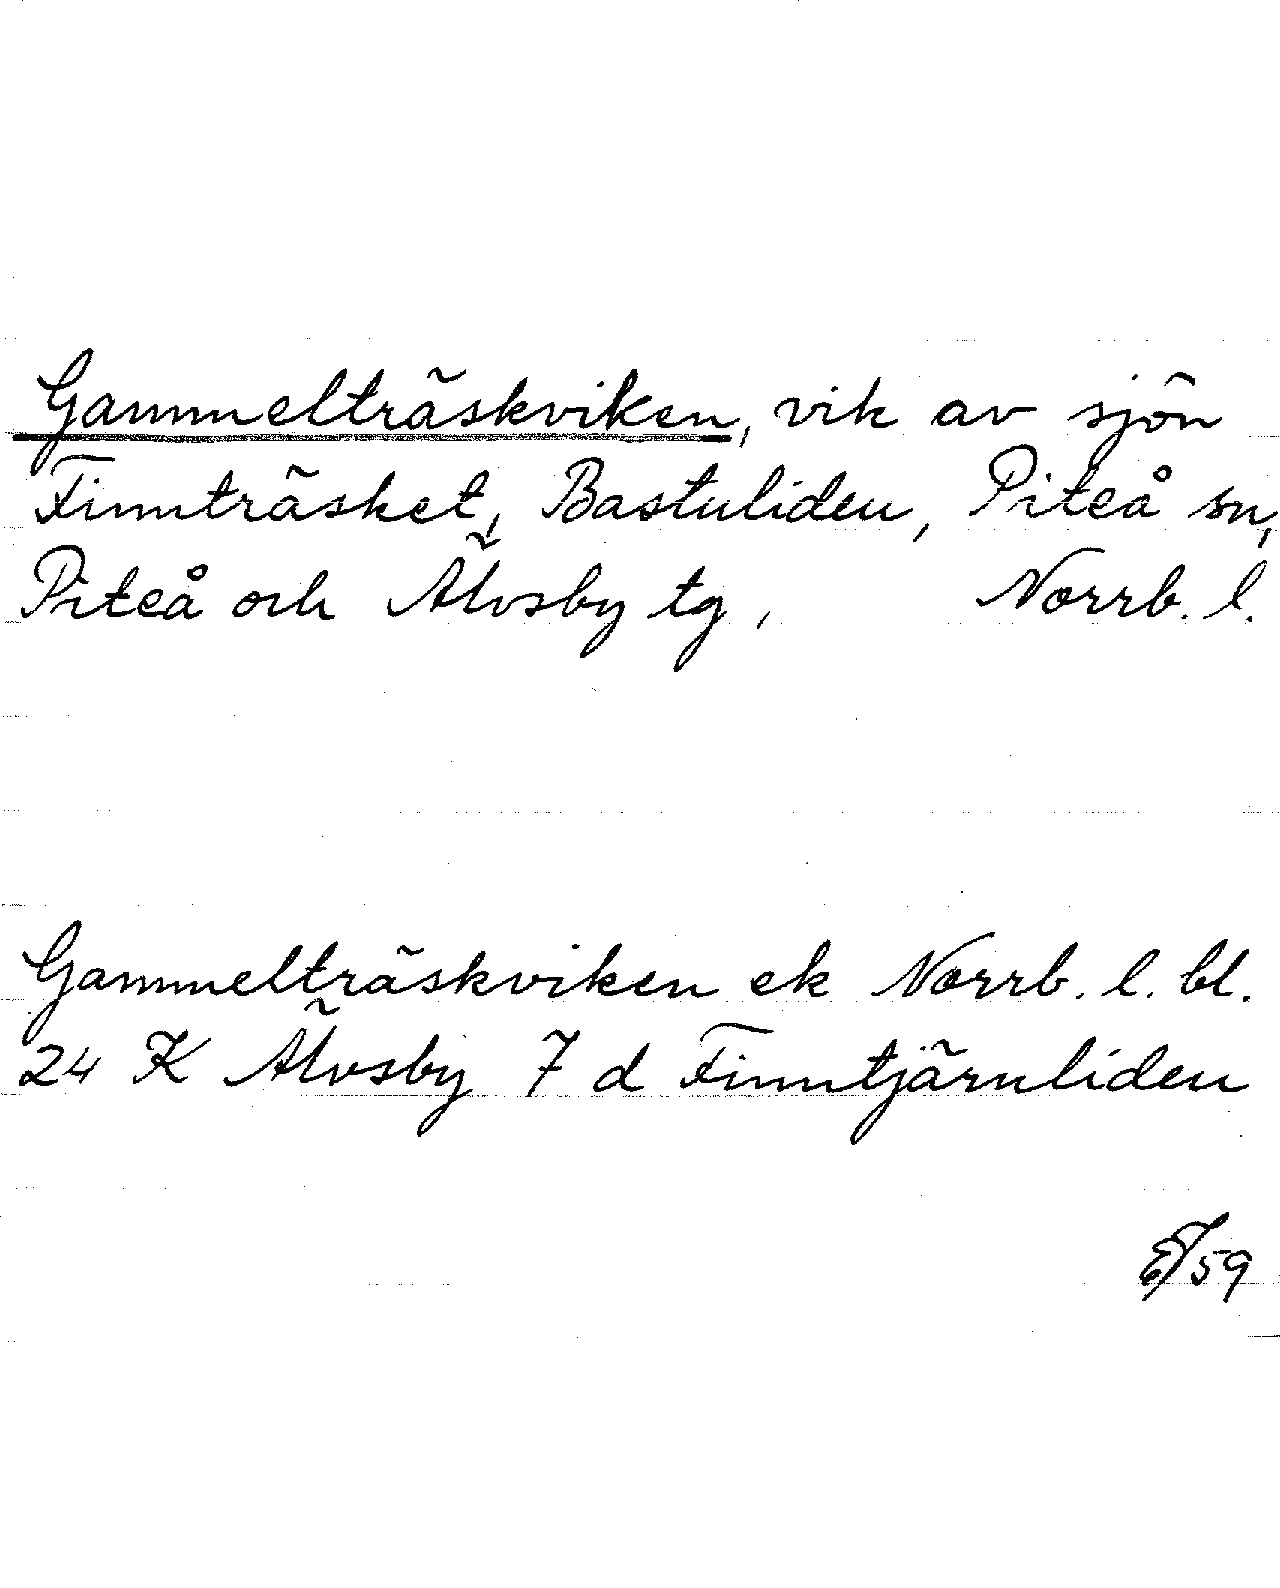 Gammelträskviken, vik av sjön
Finnträsket, Bastuliden, Piteå sn,
Piteå och Älvsby tg, Norrb. l.
Gammelträskviken ek Norrb. l. bl.
24 K Älvsby 7 d Finntjärnliden
59